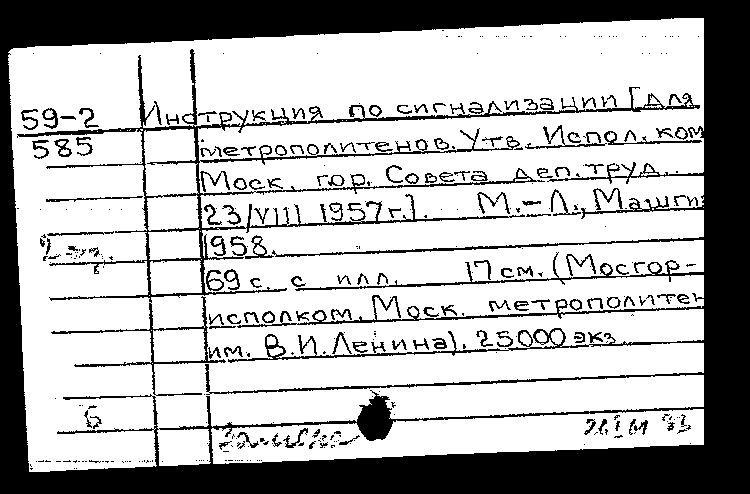 59-2
585
Инструкция по сигнализации [для
метрополитенов. Утв. Испол. ком
Моск. гор. Совета деп. труд.
23/VIII 1957г.]. М.-Л., Машгиз
1958.
2 экз.
69 с. с илл. 17 см. (Мосгор-
исполком. Моск. метрополитен
им. В.И.Ленина). 25000 экз
6